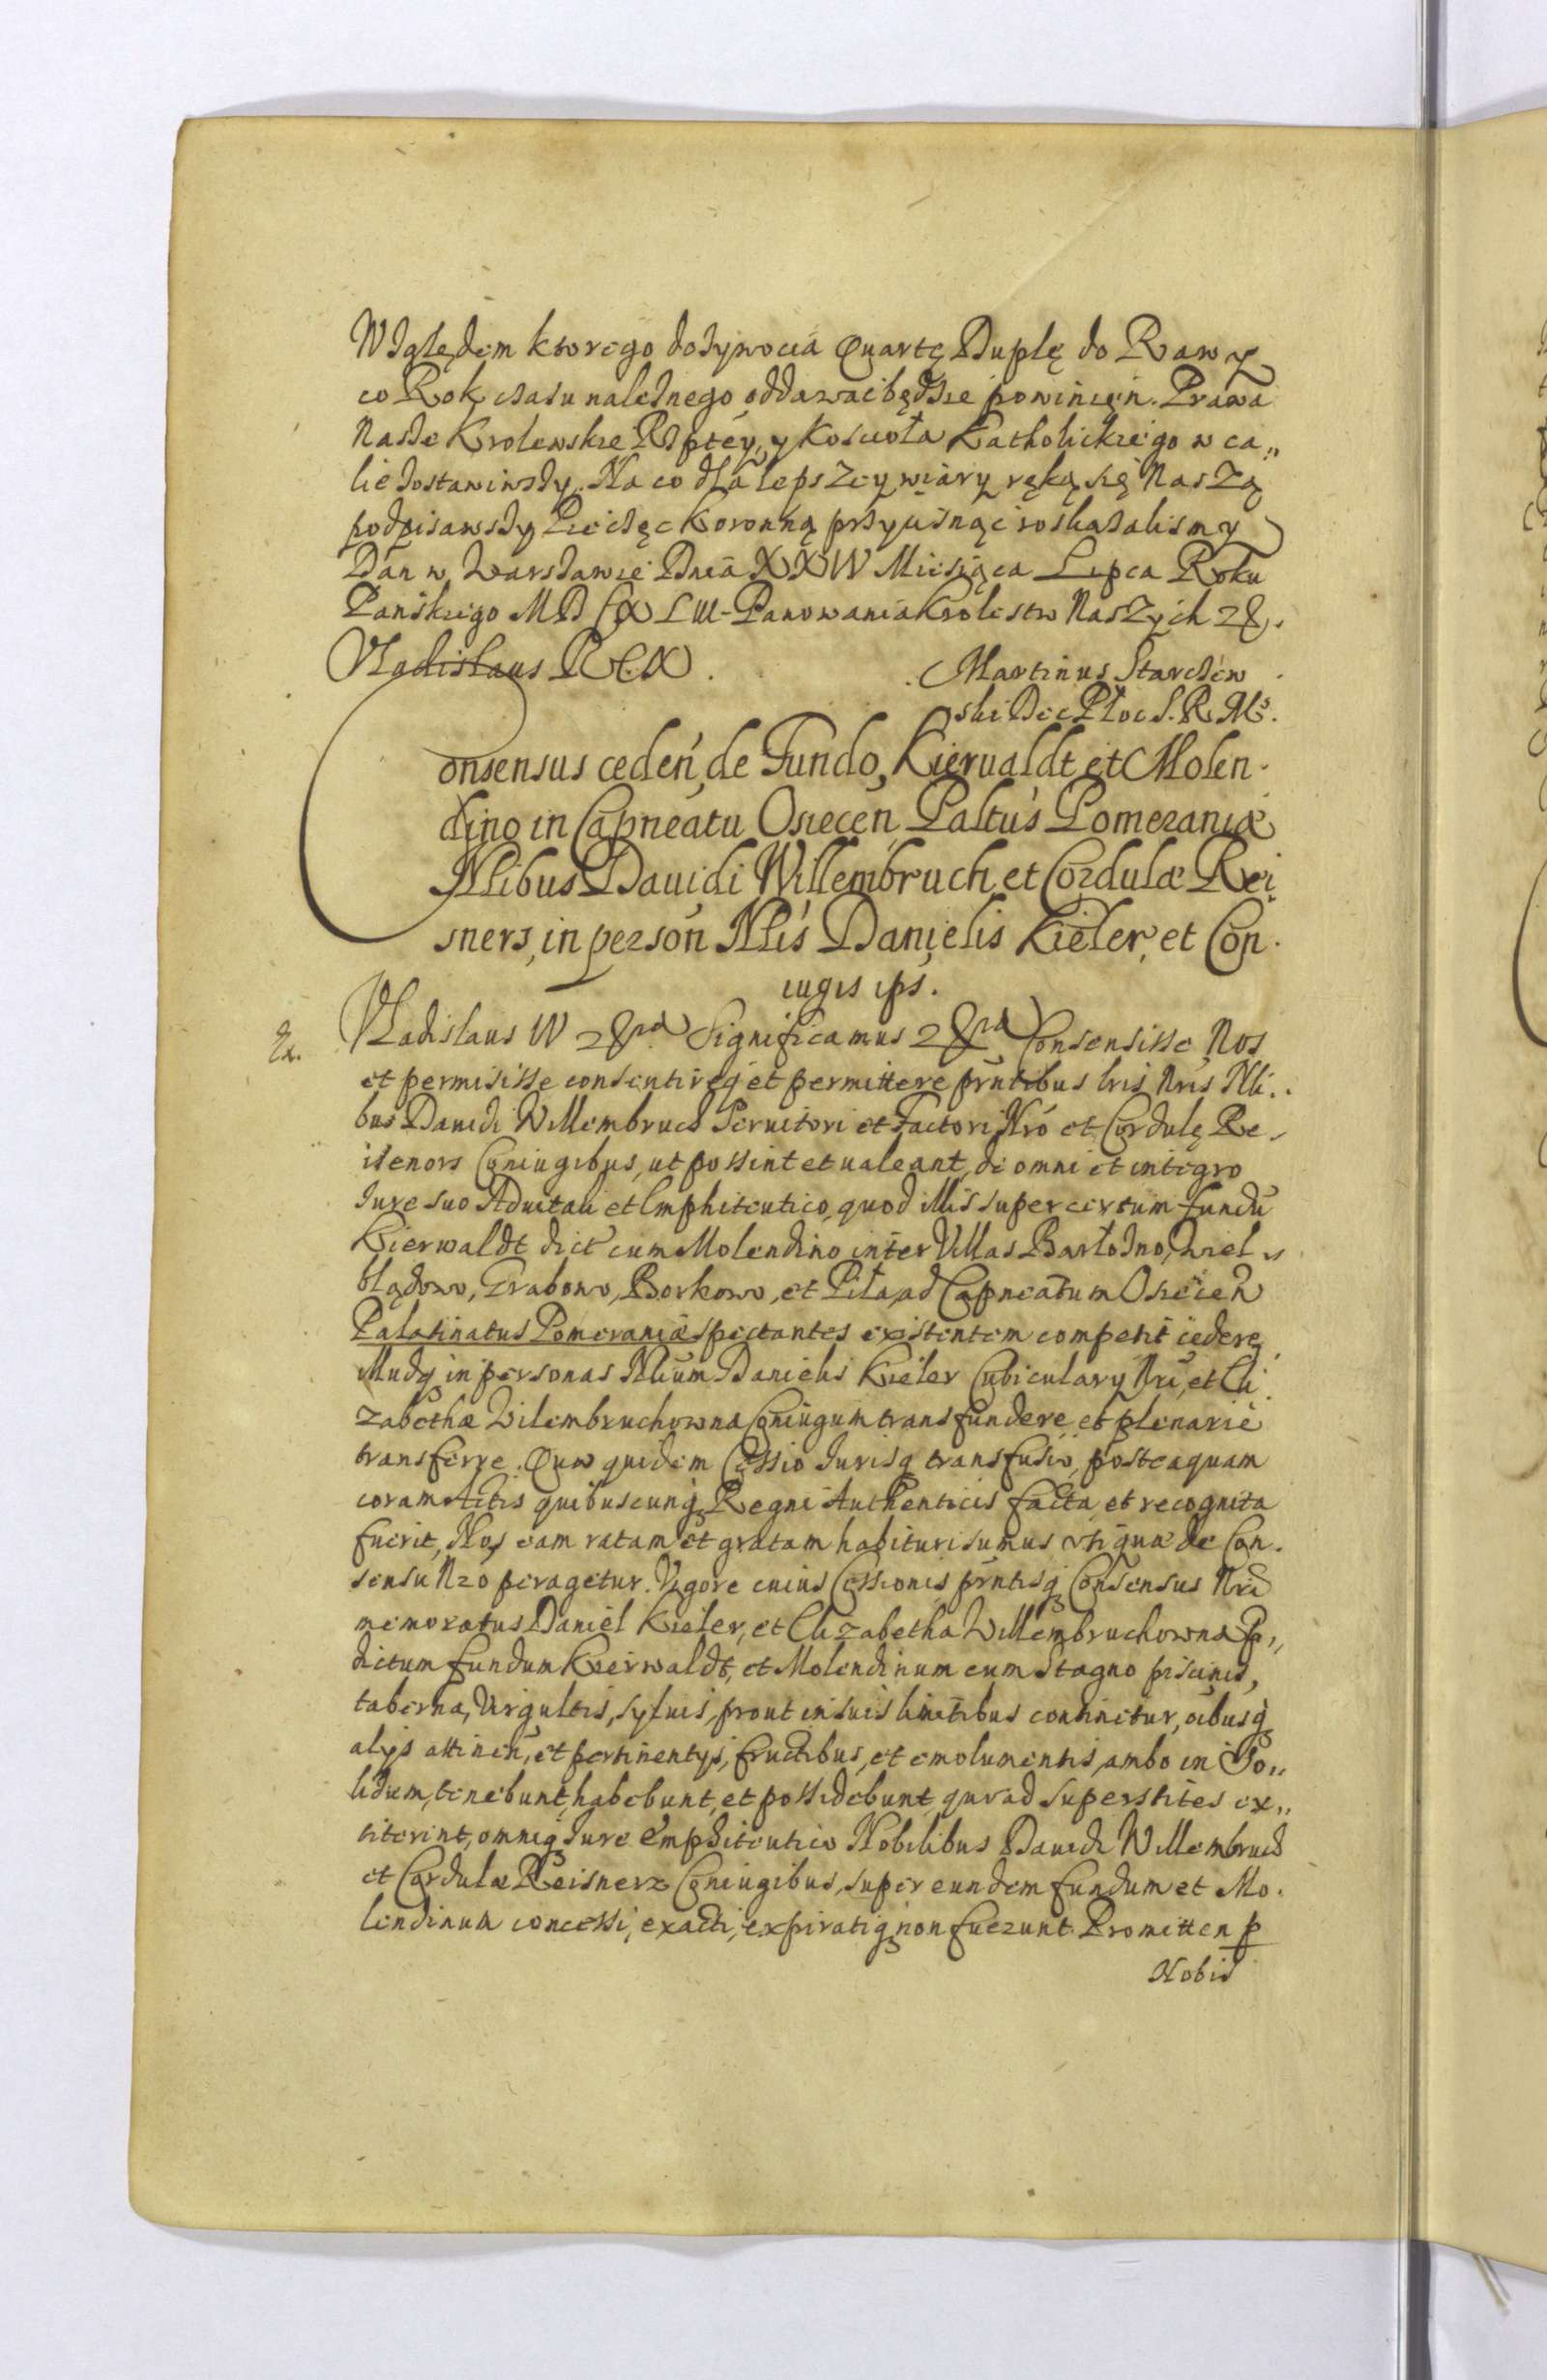 Wzalędem ktorego dożywocia Quartę Duplę do Rawy
co Rok czasu należnego oddawać będzie powinięn. Prawa
Nasze Krolewskie Rzptey, y Koscioła Katholickiego w ca„
lie zostawiwszy. Na co dla lepszey wiary ręką się Naszą
podpisawszy Pieczęć Koronną przyćisnąć roskazalismy
Dan w Warszawie Dnia XXIV Miesiąca Lipca Roku
Pańskiego MDCXLIII Panowania Krolestw Naszych 2&.
Vladislaus REX.
Martinus Starczew
ski Dec Płoc S. R. Ms.
Consensus ceden, de Fundo, Kieruałdt et Molen.
dino in Capneatu Osiecen Paltus Pomeraniæ
Nlibus Dauidi Willembruch, et Cordulæ Rei
sners, in person Nlis Danielis Kieler, et Con.
iugis ips.
Ex.
Vladislaus IV 2&ra Significamus 2&ra Consensisse Nos
et permisisse consentireq et permittere prntibus lris Nris Nli..
bus Dauidi Willembruch Seruitori et Factori Nro et Cordulę Re-
isenors Coniugibus, ut possint et ualeant, de omni et integro
Iure suo Aduitali et Emphiteutico, quod illis super certum fundu
Kierwaldt dict cum Molendino inter Villas Barłożno, Wiel„
błądowo, Grabowo, Borkowo, et Piła, ad Capneatum Osiecen
Palatinatus Pomeraniæ spectantes existentem competit cedere,
Illudq in personas Nlium Danielis Kieler Cubiculary Nri, et Eli
zabethæ Wilembruchowna Coniugum transfundere, et plenarie
transferre. Quæ quidem Cessio Iurisq transfusio, posteaquam
coram Actis quibuscunq Regni Authenticis facta et recognita
fuerit, Nos eam ratam et gratam habituri sumus utiquæ de Con.
sensu Nro peragetur. Vigore cuius Cessionis prntisq Consensus Nri
memoratus Daniel Kieler, et Elizabetha Willembruchowna P„
dictum fundum Kierwaldt, et Molendinum cum Stagno piscinis,
taberna, Virgultis, syluis, prout in suis limitibus continetur, oibusq
alijs attinen, et pertinentijs, fructibus, et emolumentis, ambo in So„
lidum, tenebunt, habebunt, et possidebunt, quoad superstites ex„
titerint, omniq Iure Emphiteutico Nobilibus Dauidi Willembruch
et Cordulæ Reisnerz Coniugibus, super eundem fundum et Mo.
lendinum concessi, exacti, expiratiq non fuerunt. Promitten p
Nobis